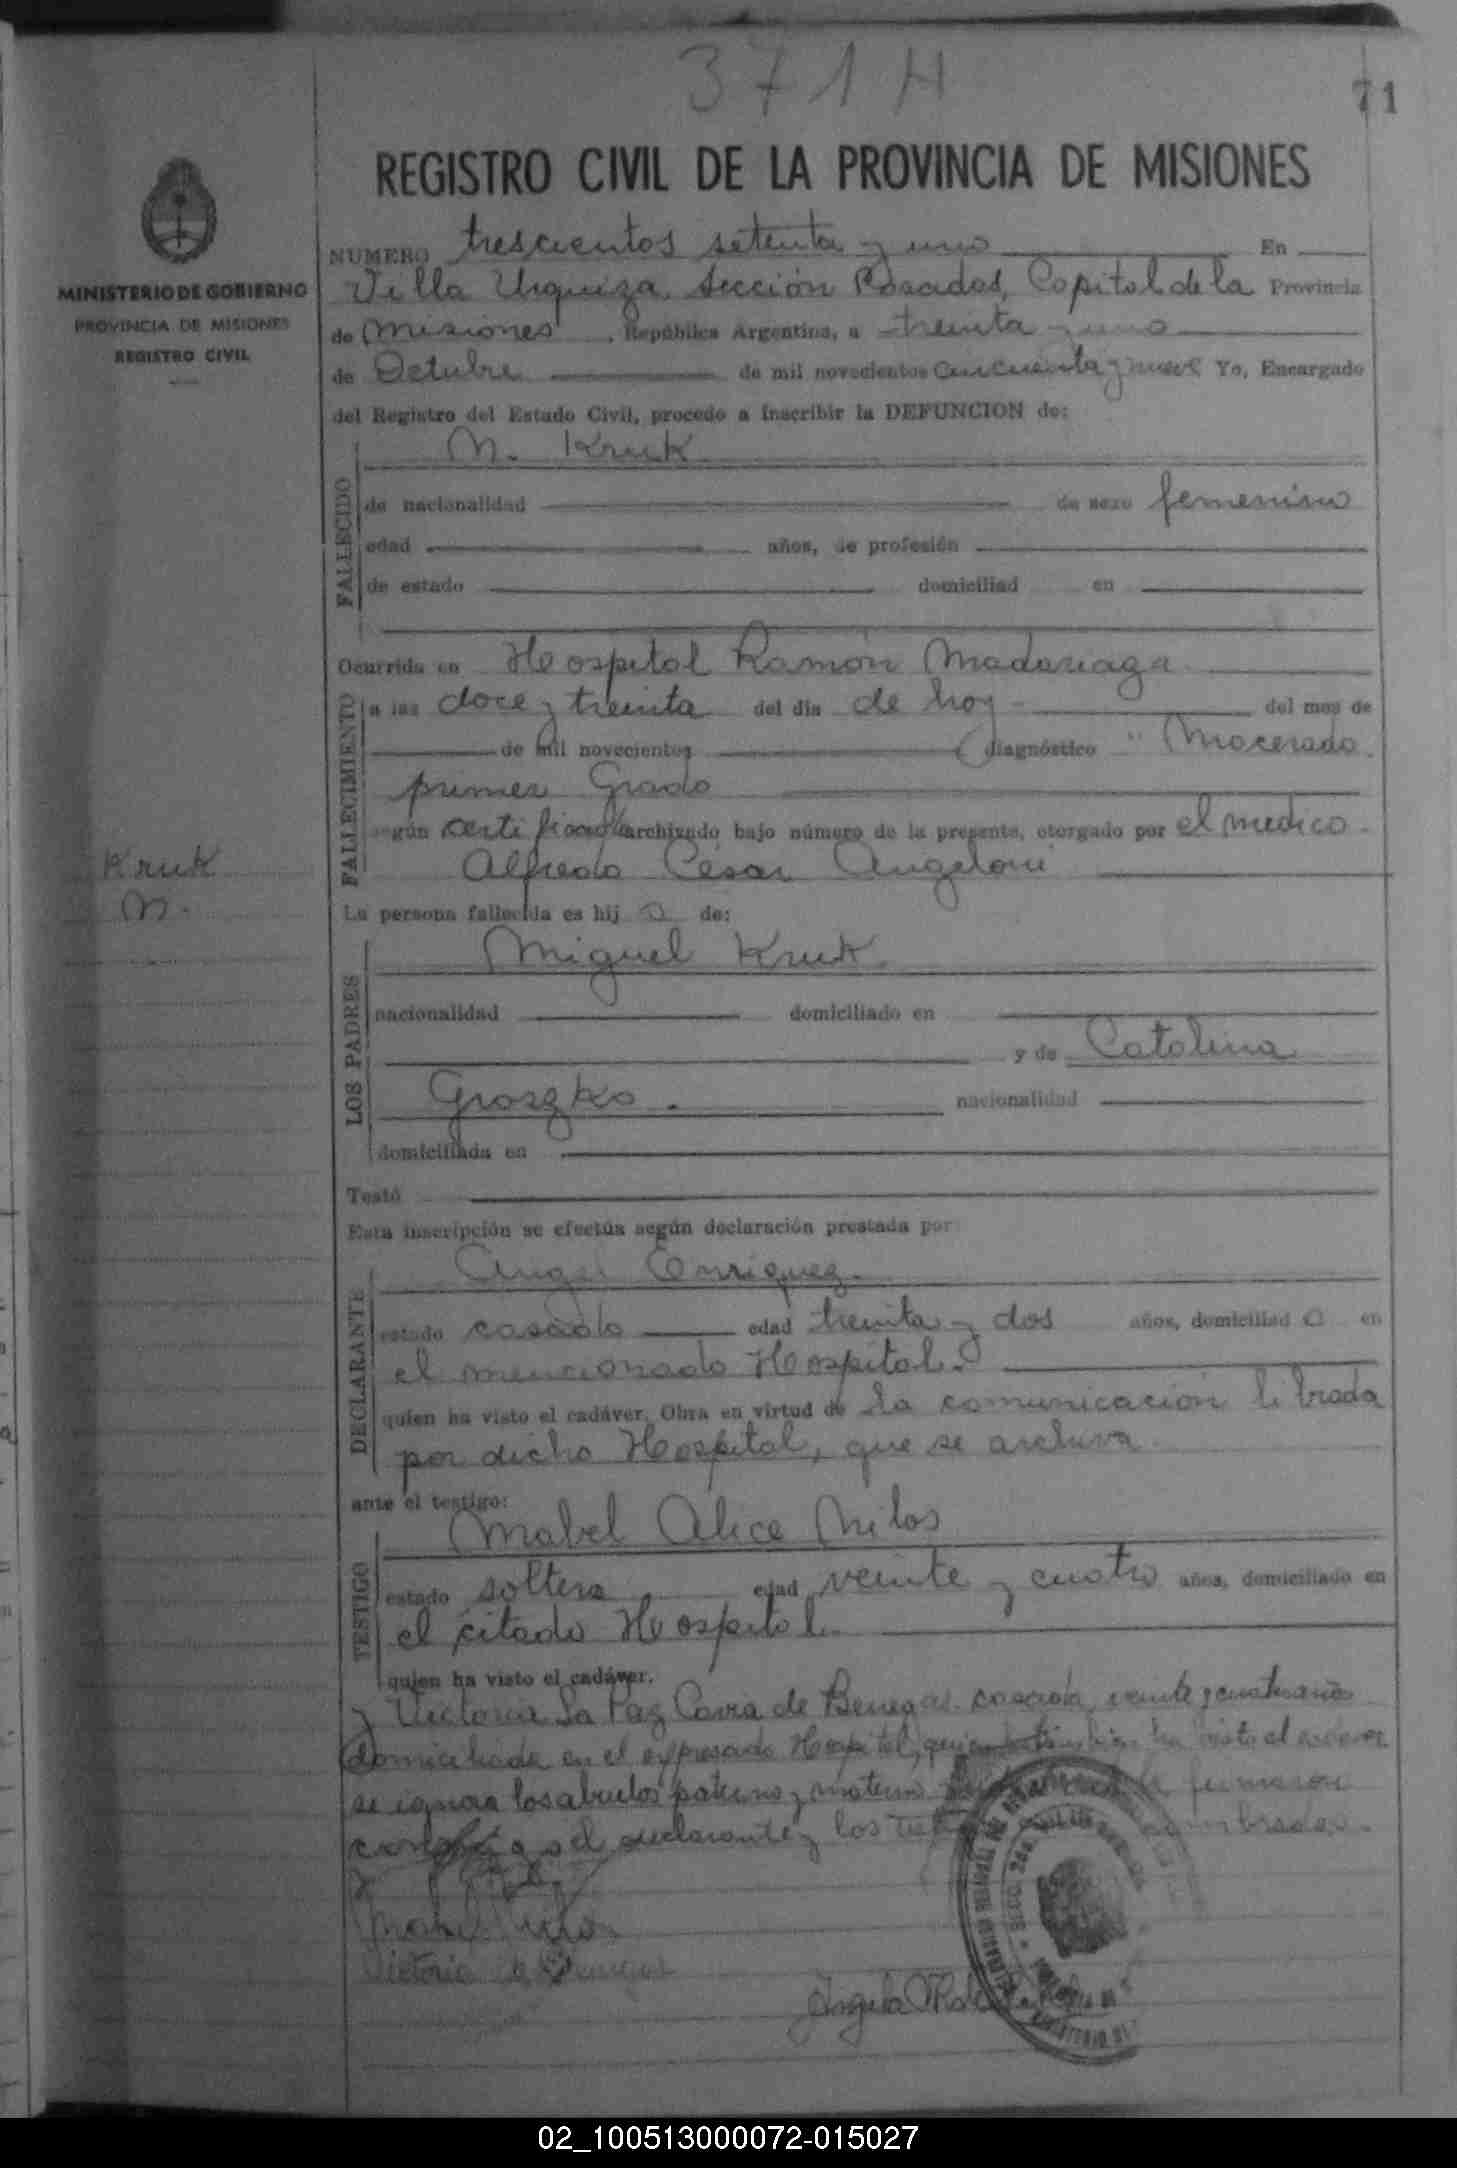 371 H
71
REGISTRO CIVIL DE LA PROVINCIA DE MISIONES
MINISTERIO DE GOBIERNO
PROVINCIA DE MISIONES
REGISTRO CIVIL
NUMERO trescientos setenta y uno En
Villa Urquiza, Sección Posadas, Capital de la Provincia
de Misiones, República Argentina, a treinta y uno
de Octubre de mil novecientos cincuenta y nueve Yo, Encargado
del Registro del Estado Civil, procedo a inscribir la DEFUNCION de:
FALLECIDO
N. Kruk
de nacionalidad de sexo femenino
edad años, de profesión
de estado domiciliad en
Ocurrida en Hospital Ramón Madariaga
FALLECIMIENTO
a las doce y treinta del día de hoy del mes de
de mil novecientos (diagnóstico "Macerado
primer Grado
según certificado archivado bajo número de la presente, otorgado por el medico
Alfredo César Angeloni
Kruk
N.
La persona fallecida es hij a de:
LOS PADRES
Miguel Kruk
nacionalidad domiciliado en
y de Catalina
Groszko. nacionalidad
domiciliada en
Testó
Esta inscripción se efectúa según declaración prestada por
DECLARANTE
Angel Enriquez.
estado casado edad treinta y dos años, domiciliad o en
el mencionado Hospital.
quien ha visto el cadáver. Obra en virtud de la comunicación librada
por dicho Hospital, que se archiva
ante el testigo:
TESTIGO
Mabel Alice Milos
estado soltera edad veinte y cuatro años, domiciliado en
el citado Hospital
quien ha visto el cadáver.
y Victoria La Paz de Benegas casada, veinte y cuatro años
domiciliada en el expresado Hospital, quien también ha visto el cadaver
se ignora los abuelos paterno y materno firmaron
conmigo el declarante y los
Victoria
Angela
02_100513000072-015027